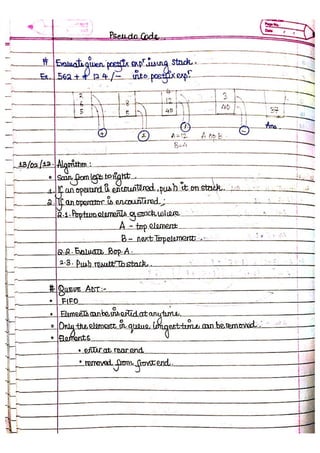 Pseudo Code
# Evaluate given postfix expr using stack.
Ex. 562++ 12 4 /- into postfix expr
2
6
5
8
5
4
12
40
3
40
37
+
*
/
-
A=12 A op B
B=4
Ans.
13/02/12 Algorithm:
• Scan from left to right.
1. If an operand is encountered, push it on stack.
2. If an operator is encountered;
2.1. Pop two elements of stack where
A - top element
B - next Top element.
2.2. Evaluate B op A.
2.3. Push result To stack.
# Queue ADT:-
• FIFO
• Elements can be inserted at any time.
• Only the element in queue longest time can be removed.
• Elements
• enter at rear end
• removed from front end.